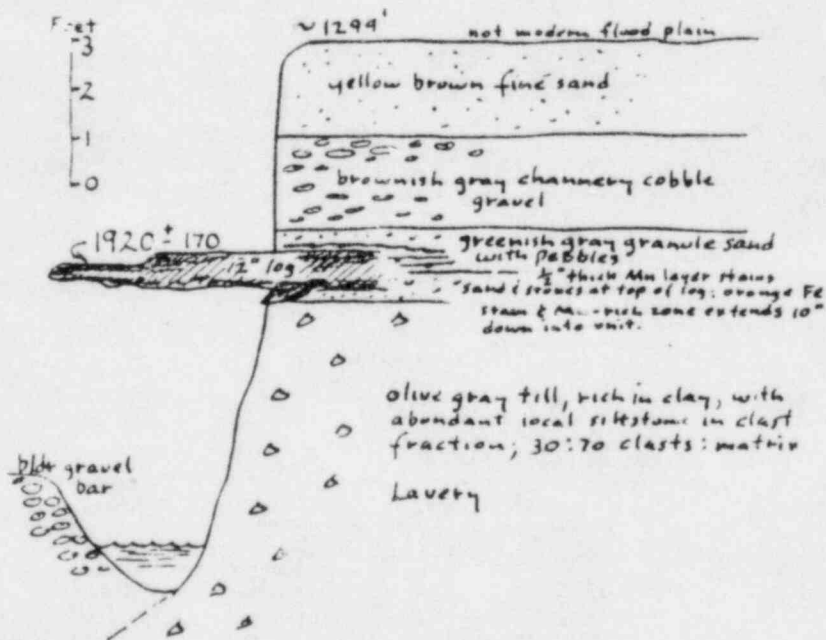 Feet
3
2
1
0
~1294'
not modern flood plain
yellow brown fine sand
brownish gray channery cobble
gravel
1920 ± 170
12" log
greenish gray granule sand
with pebbles
½" thick Mn layer stains
sand & stones at top of log; orange Fe
stain & Mn-rich zone extends 10"
down into unit.
olive gray till, rich in clay, with
abundant local siltstone in clast
fraction; 30:70 clasts:matrix
Lavery
bldr gravel
bar